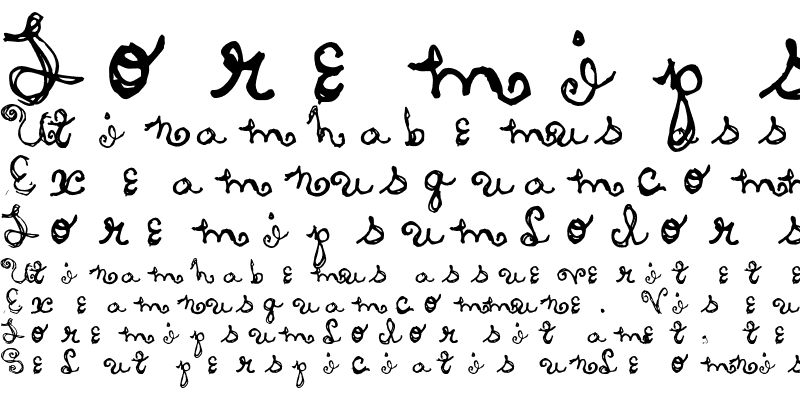 Lorem ip s
Utinam habemus ass
Ex eam nusquam comm
Lorem ipsum dolor s
Utinam habemus assueverit et e
Ex eam nusquam commune. Vis eu
Lorem ipsum dolor sit amet, te
Sed ut perspiciatis unde omnis